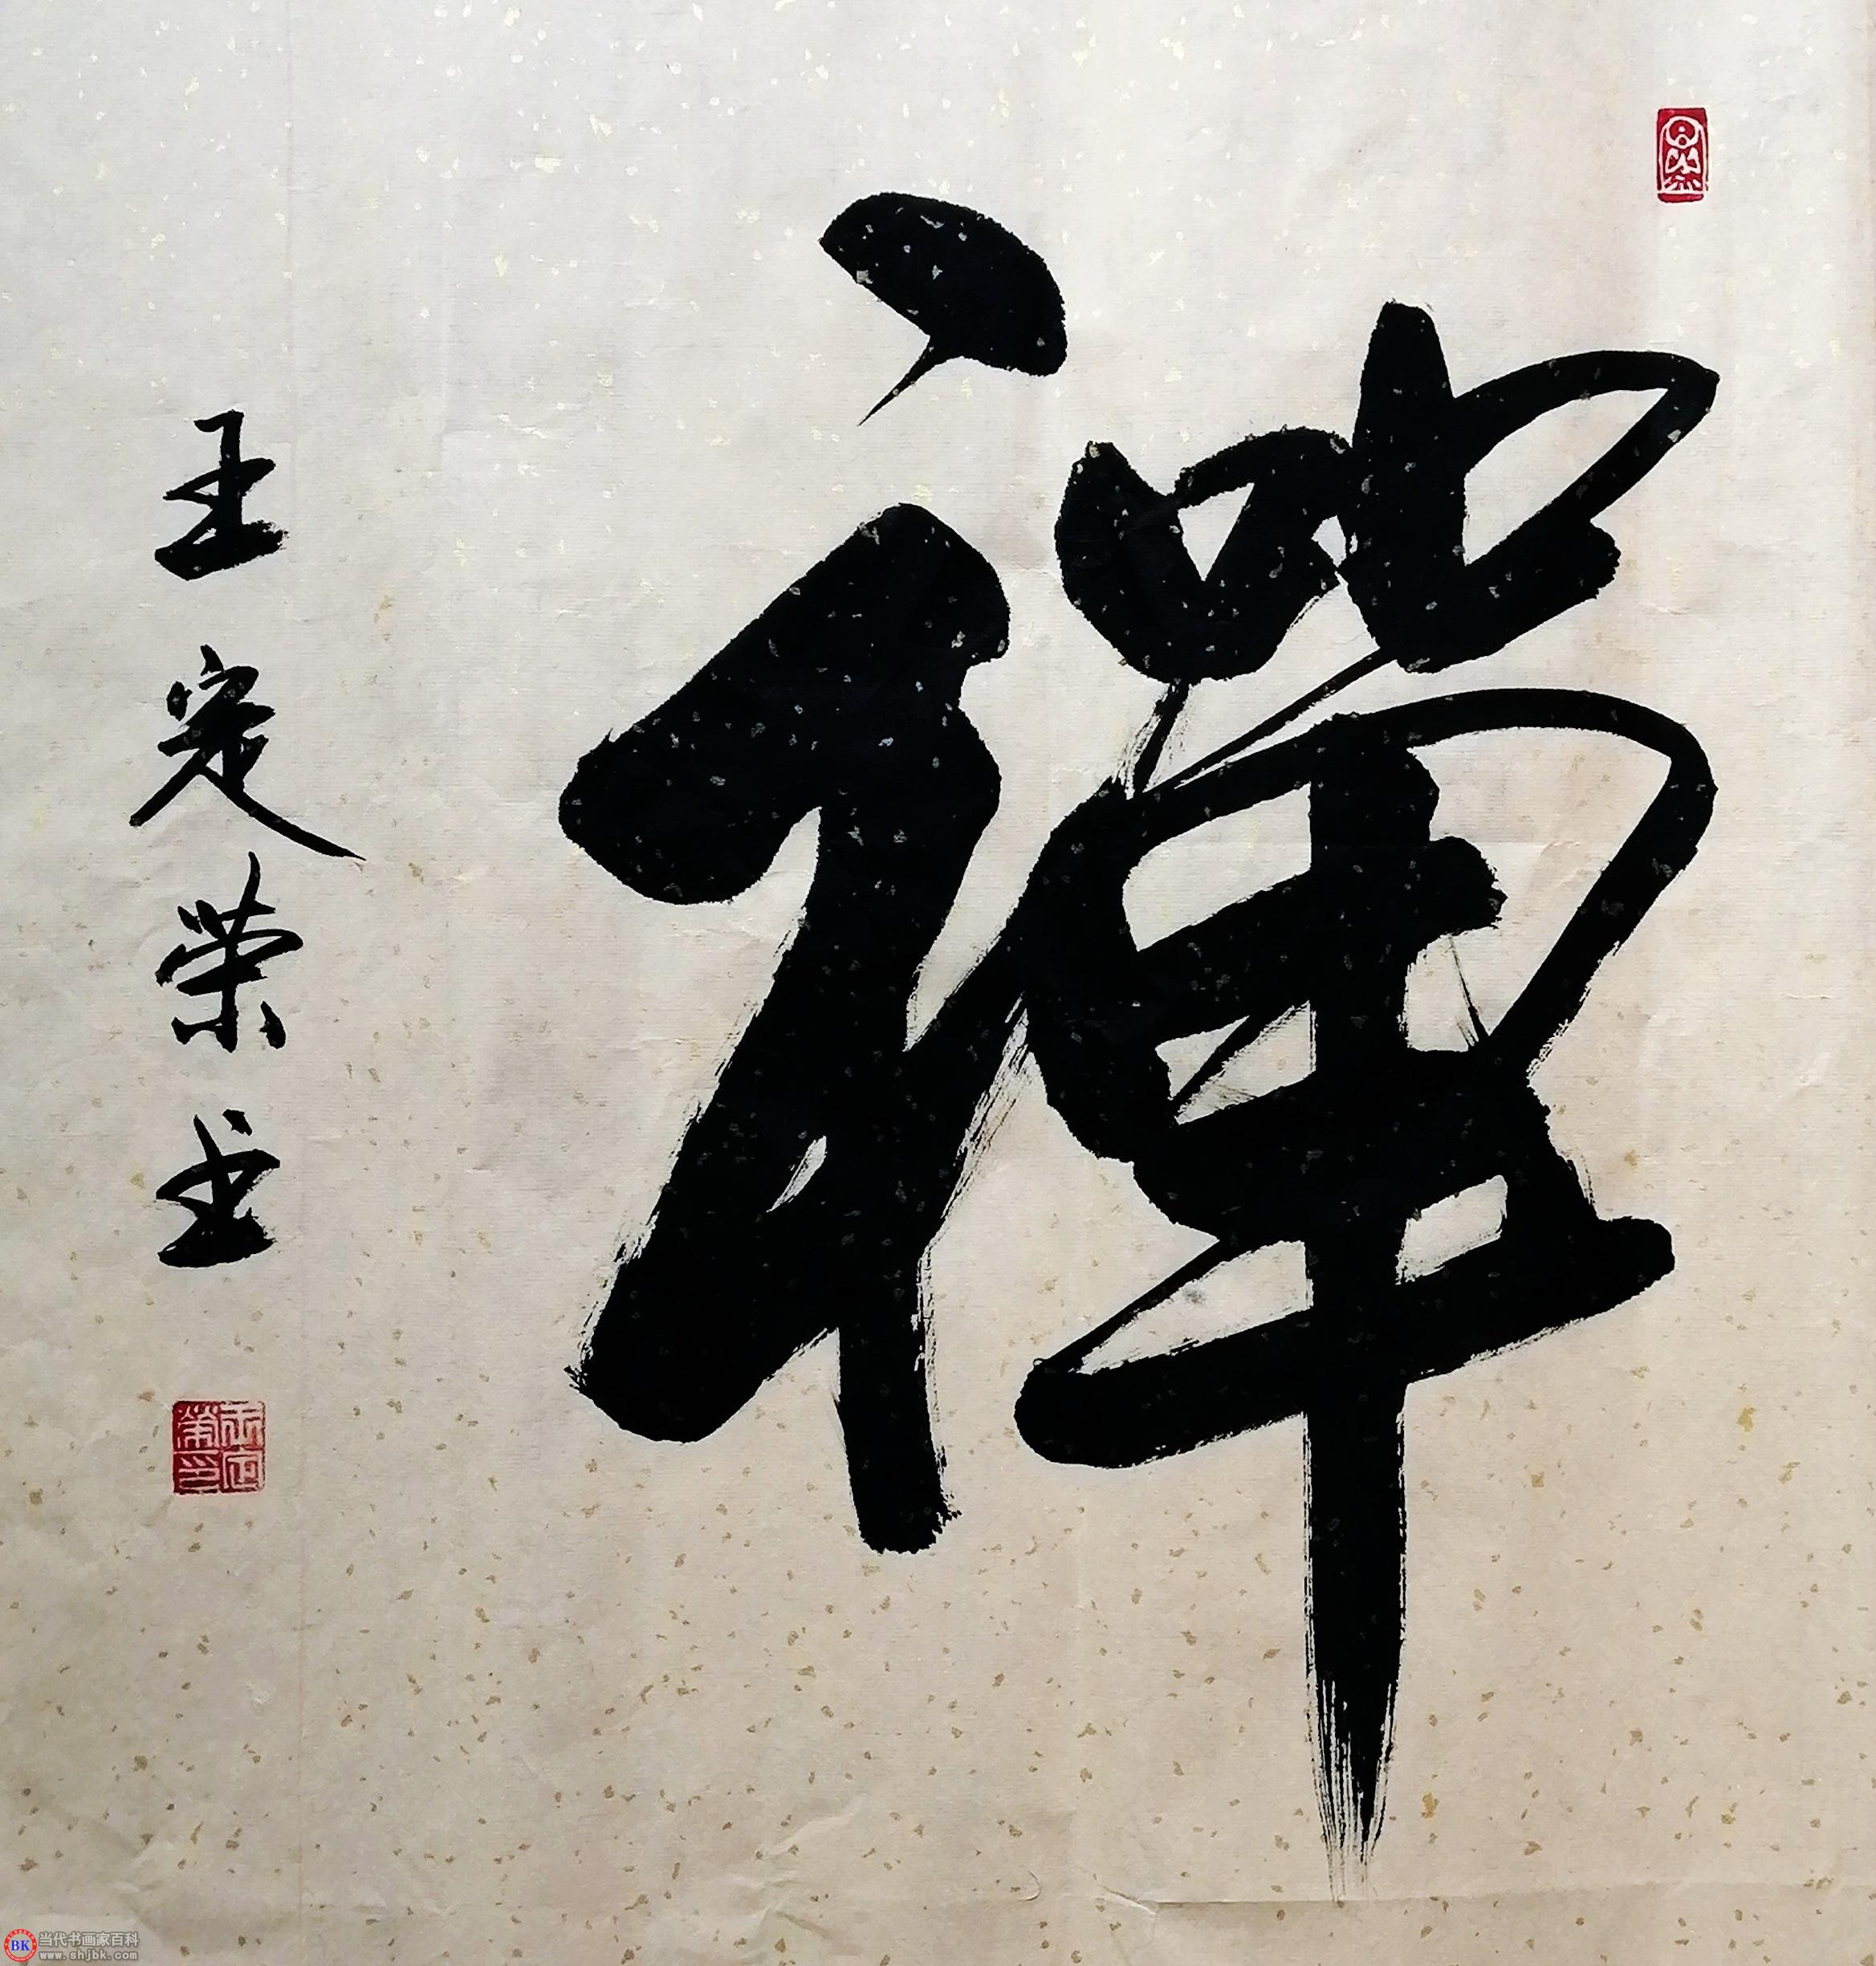 禪
王定荣书
王定荣印
BK 当代书画家百科
www.shjbk.com